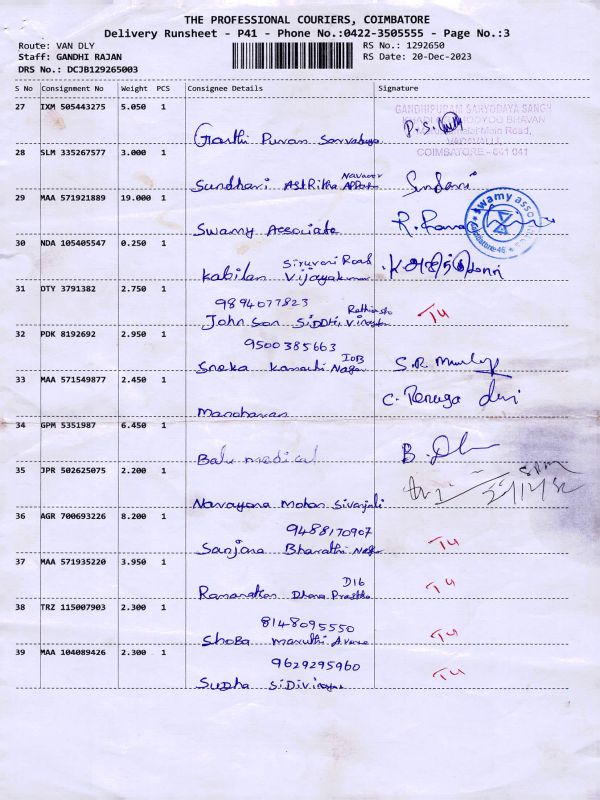 THE PROFESSIONAL COURIERS, COIMBATORE
Delivery Runsheet - P41 - Phone No.:0422-3505555 - Page No.:3
Route: VAN DLY
RS No.: 1292650
Staff: GANDHI RAJAN
RS Date: 20-Dec-2023
DRS No.: DCJB129265003
S No Consignment No Weight PCS Consignee Details Signature
27 IXM 505443275 5.050 1
GANDHIPURAM SARVODAYA SANGH
BHAVAN
Main Road,
COIMBATORE - 641 041
28 SLM 335267577 3.000 1
Sundhari
29 MAA 571921889 19.000 1
Swamy Associate
swamy asso
Coimbatore-46
30 NDA 105405547 0.250 1
Siruvani Road
Kabilan Vijayakumar
31 DTY 3791382 2.750 1
9894077823
Johnson Siddhi Vinayaka
32 PDK 8192692 2.950 1
9500385663
IOB
Sneka Kamachi Nagar
33 MAA 571549877 2.450 1
C. Renuga devi
Manoharan
34 GPM 5351987 6.450 1
Balu medical
35 JPR 502625075 2.200 1
Narayana Mohan Sivanjali
36 AGR 700693226 8.200 1
9488170907
Sanjana Bharathi Nagar
37 MAA 571935220 3.950 1
D16
38 TRZ 115007903 2.300 1
8148095550
Shoba Maruthi Avenue
39 MAA 104089426 2.300 1
9629295960
Sudha